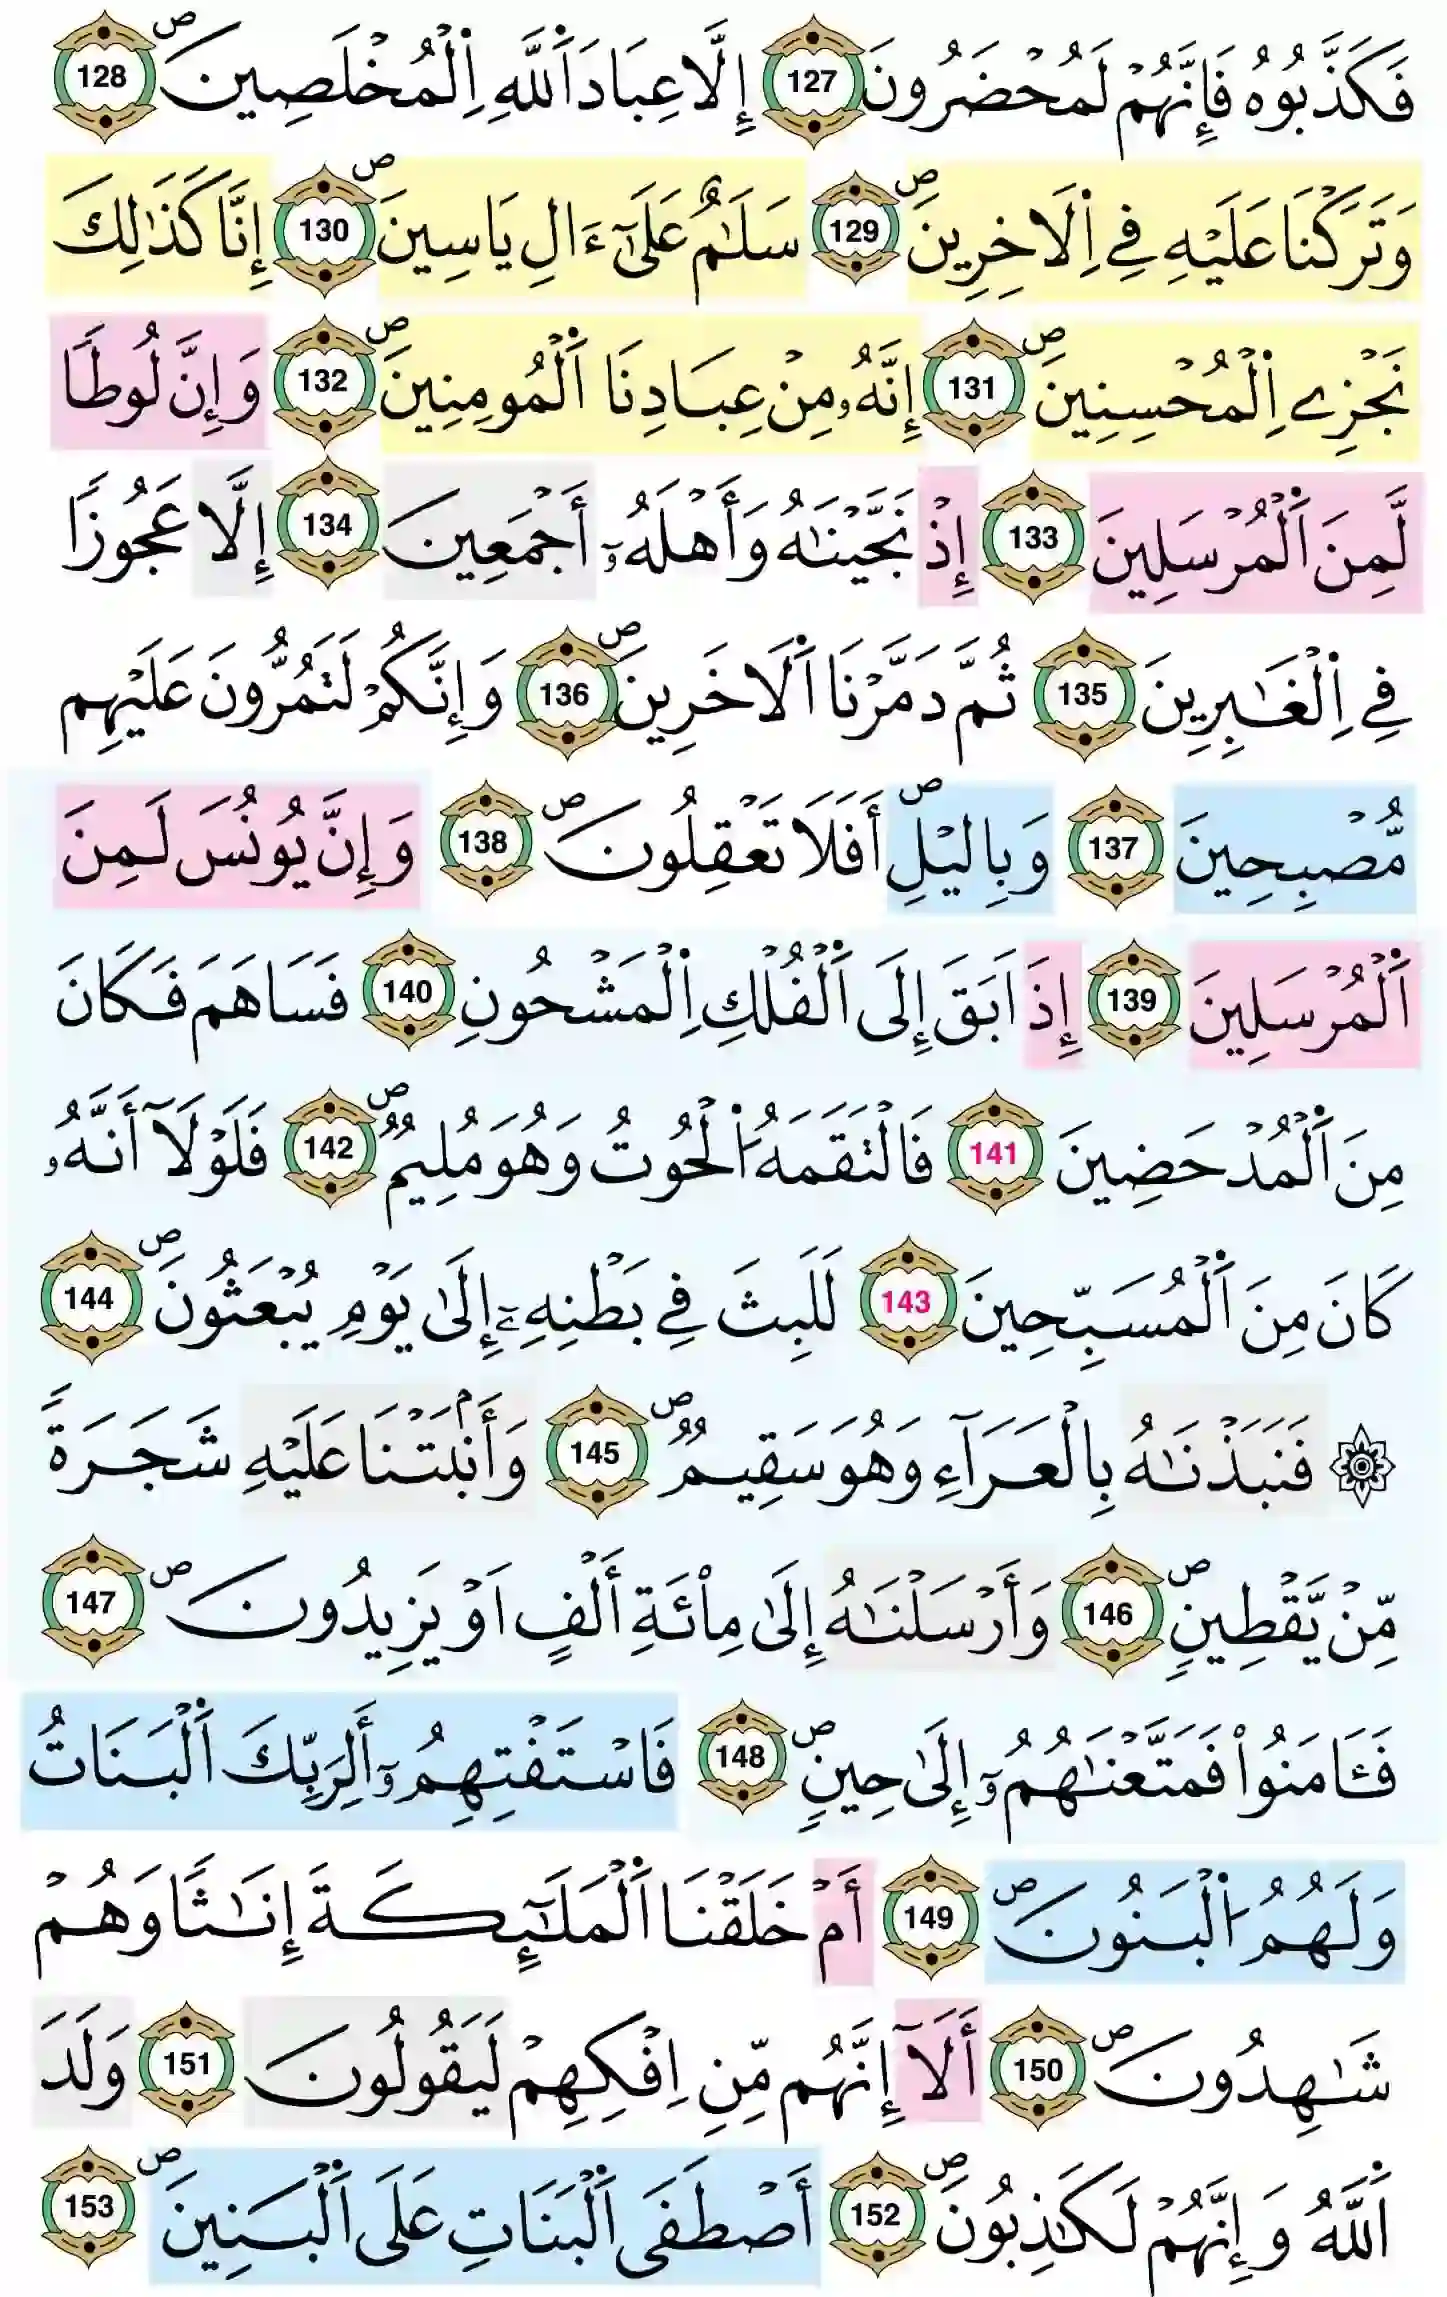 فَكَذَّبُوهُ فَإِنَّهُمْ لَمُحْضَرُونَ 127 إِلَّا عِبَادَ اَ۬للَّهِ اِ۬لْمُخْلَصِينَۖ 128
وَتَرَكْنَا عَلَيْهِ فِے اِ۬لَاخِرِينَۖ 129 سَلَٰمٌ عَلَىٰٓ ءَالِ يَاسِينَۖ 130 إِنَّا كَذَٰلِكَ
نَجْزِے اِ۬لْمُحْسِنِينَۖ 131 إِنَّهُۥ مِنْ عِبَادِنَا اَ۬لْمُومِنِينَۖ 132 وَإِنَّ لُوطاٗ
لَّمِنَ اَ۬لْمُرْسَلِينَ 133 إِذْ نَجَّيْنَٰهُ وَأَهْلَهُۥٓ أَجْمَعِينَ 134 إِلَّا عَجُوزاٗ
فِے اِ۬لْغَٰبِرِينَ 135 ثُمَّ دَمَّرْنَا اَ۬لَاخَرِينَۖ 136 وَإِنَّكُمْ لَتَمُرُّونَ عَلَيْهِم
مُّصْبِحِينَ 137 وَبِالَيْلِۖ أَفَلَا تَعْقِلُونَۖ 138 وَإِنَّ يُونُسَ لَمِنَ
اَ۬لْمُرْسَلِينَ 139 إِذَ اَبَقَ إِلَى اَ۬لْفُلْكِ اِ۬لْمَشْحُونِ 140 فَسَاهَمَ فَكَانَ
مِنَ اَ۬لْمُدْحَضِينَ 141 فَالْتَقَمَهُ اُ۬لْحُوتُ وَهُوَ مُلِيمٞۖ 142 فَلَوْلَآ أَنَّهُۥ
كَانَ مِنَ اَ۬لْمُسَبِّحِينَ 143 لَلَبِثَ فِے بَطْنِهِۦٓ إِلَىٰ يَوْمِ يُبْعَثُونَۖ 144
۞ فَنَبَذْنَٰهُ بِالْعَرَآءِ وَهُوَ سَقِيمٞۖ 145 وَأَنۢبَتْنَا عَلَيْهِ شَجَرَةٗ
مِّنْ يَّقْطِينٖۖ 146 وَأَرْسَلْنَٰهُ إِلَىٰ مِاْئَةِ أَلْفٍ اَوْ يَزِيدُونَۖ 147
فَـَٔامَنُواْ فَمَتَّعْنَٰهُمُۥٓ إِلَىٰ حِينٖۖ 148 فَاسْتَفْتِهِمُۥٓ أَلِرَبِّكَ اَ۬لْبَنَاتُ
وَلَهُمُ اُ۬لْبَنُونَۖ 149 أَمْ خَلَقْنَا اَ۬لْمَلَٰٓئِكَةَ إِنَٰثاٗ وَهُمْ
شَٰهِدُونَۖ 150 أَلَآ إِنَّهُم مِّنِ اِفْكِهِمْ لَيَقُولُونَ 151 وَلَدَ
اَ۬للَّهُ وَإِنَّهُمْ لَكَٰذِبُونَۖ 152 أَصْطَفَى اَ۬لْبَنَاتِ عَلَى اَ۬لْبَنِينَۖ 153